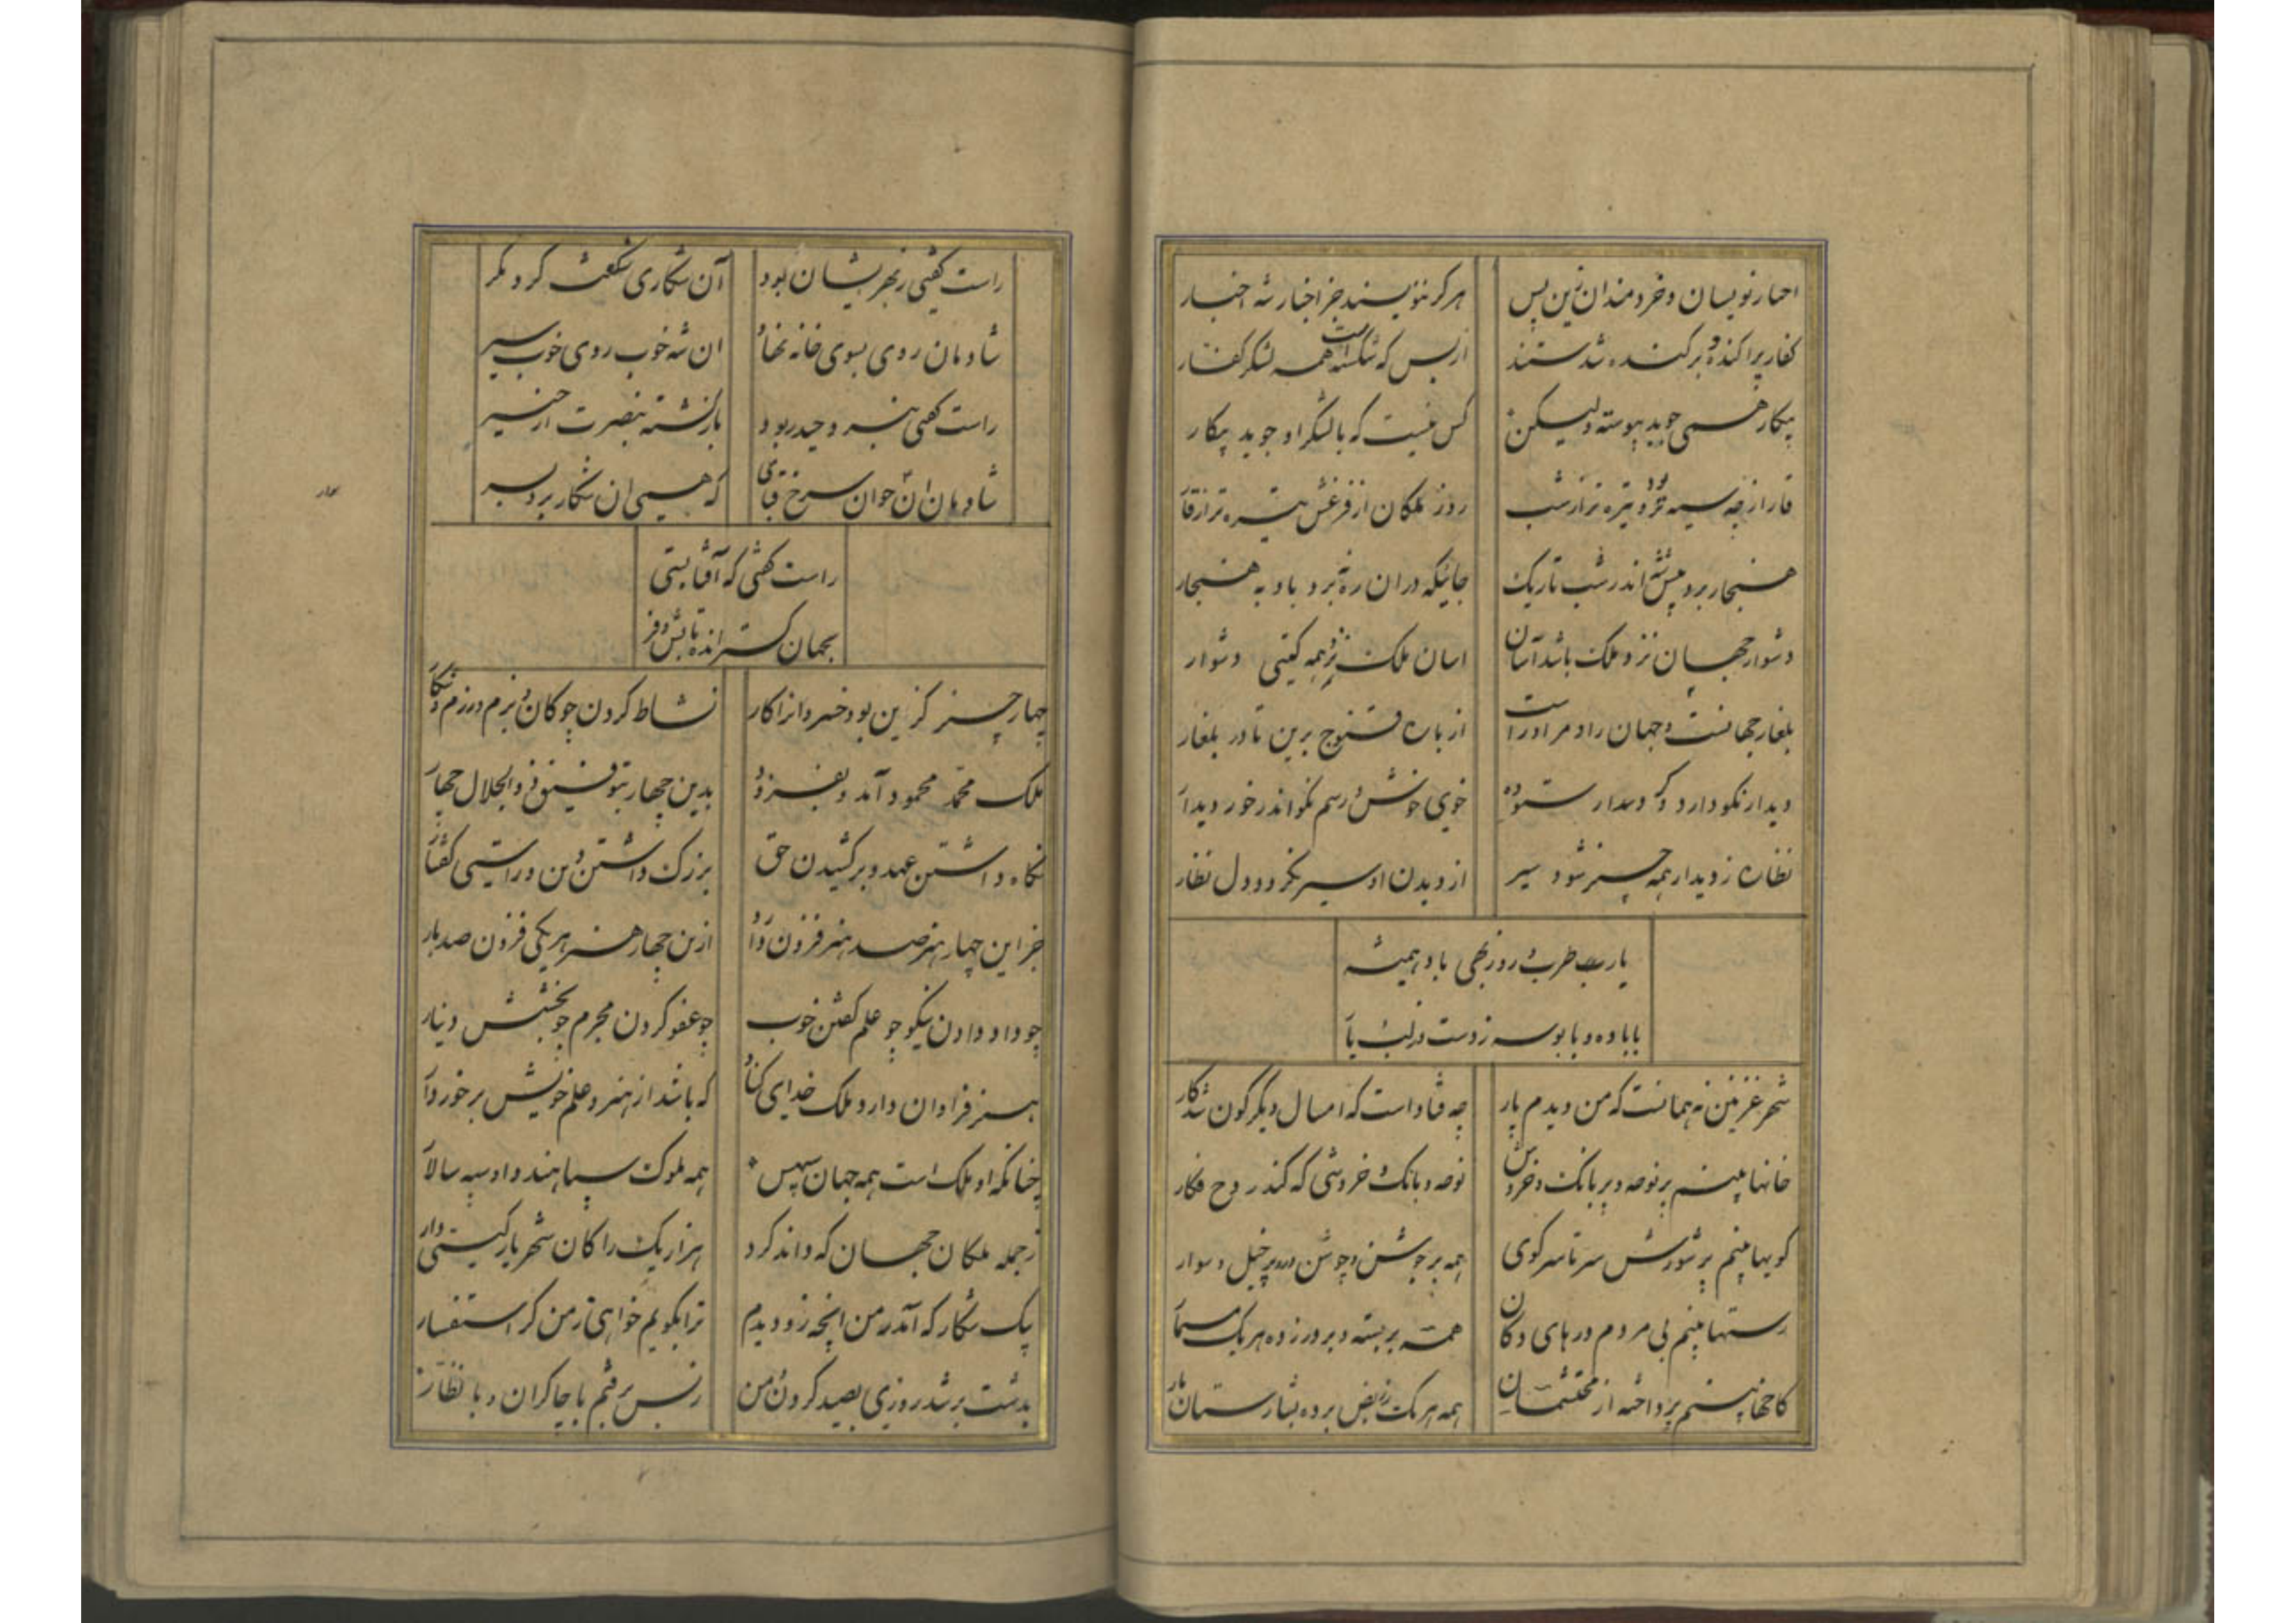 اخبار نویسان و خردمندان زین پس
هرگز ننویسند جز اخبار شه اخبار
کفار پراکنده و برکنده شدستند
از بس که شکسته است همه لشکر کفار
پیکار همی جوید پیوسته ولیکن
کس نیست که با لشکر او جوید پیکار
قار ارچه سیه تر بود و تیره تر از شب
روز ملکان از فزعش تیره تر از قار
هنجار برد پیش شه اندر شب تاریک
جائیکه در آن ره نبرد باد به هنجار
دشوار جهان نزد ملک باشد آسان
اسان ملک نزد همه گیتی دشوار
بلغار جهانست و جهان راد مر او راست
از باره قنوج برین تا در بلغار
دیدار نکو دارد و کردار ستوده
خوی خوش و رسم نکو اندر خور دیدار
نظاره ز دیدار همه چیز شود سیر
از دیدن او سیر نگردد دل نظار
یارب طرب و روز بهی باد همیشه
با باده و با بوسه ز دست و ز لب یار
شهر غزنین نه همانست که من دیدم پار
چه فتاد است که امسال دیگر گون شد کار
خانها بینم پر نوحه و پر بانک و خروش
نوحه و بانک و خروشی که کند روح فکار
کویها بینم پر شورش سر تا سر کوی
همه پر جوشن و جوشن در و پر خیل و سوار
رستها بینم بی مردم درهای دکان
همه بر بسته و بر در زده هر یک مسمار
کاخها بینم پرداخته از محتشمان
همه یکسر ز ربض برده بشارستان بار
راست گفتی رنجریشان بود
آن شکاری شگفت کرد مگر
شادمان روی بسوی خانه نهاد
ان شه خوب روی خوب سیر
راست گفتی نبرد حیدر بود
بازگشته بنصرت از خیبر
شادمان ان جوان سرخ قبای
که همی ان شکار برد بسر
راست گفتی که آفتابستی
بجهان گسترانده تابش و فر
چهار چیز گزین بود خسروانرا کار
نشاط کردن چوگان و بزم و رزم و شکار
ملک محمد محمود آمد و بفزود
بدین چهار بتوفیق ذو الجلال چهار
نگاه داشتن عهد و برکشیدن حق
بزرگ داشتن دین و راستی گفتار
جز این چهار هنر صد هنر فزون دارد
ازین چهار هنر هر یکی فزون صد بار
چو داد دادن نیکو چو علم گفتن خوب
چو عفو کردن مجرم چو بخشش دینار
هنر فراوان دارد ملک خدای کناد
که باشد از هنر و علم خویش برخوردار
چنانکه او ملک است همه جهان سپس
همه ملوک سپاهند و او سپه سالار
ز جمله ملکان جهان که داند کرد
هزار یک را کان شهریار گیتی دار
یک شکار که آمد ز من انچه زو دیدم
ترا بگویم خواهی ز من گر استفسار
بدشت بر شد روزی بصید کردن و من
ز پس برفتم با چاکران و با نظار